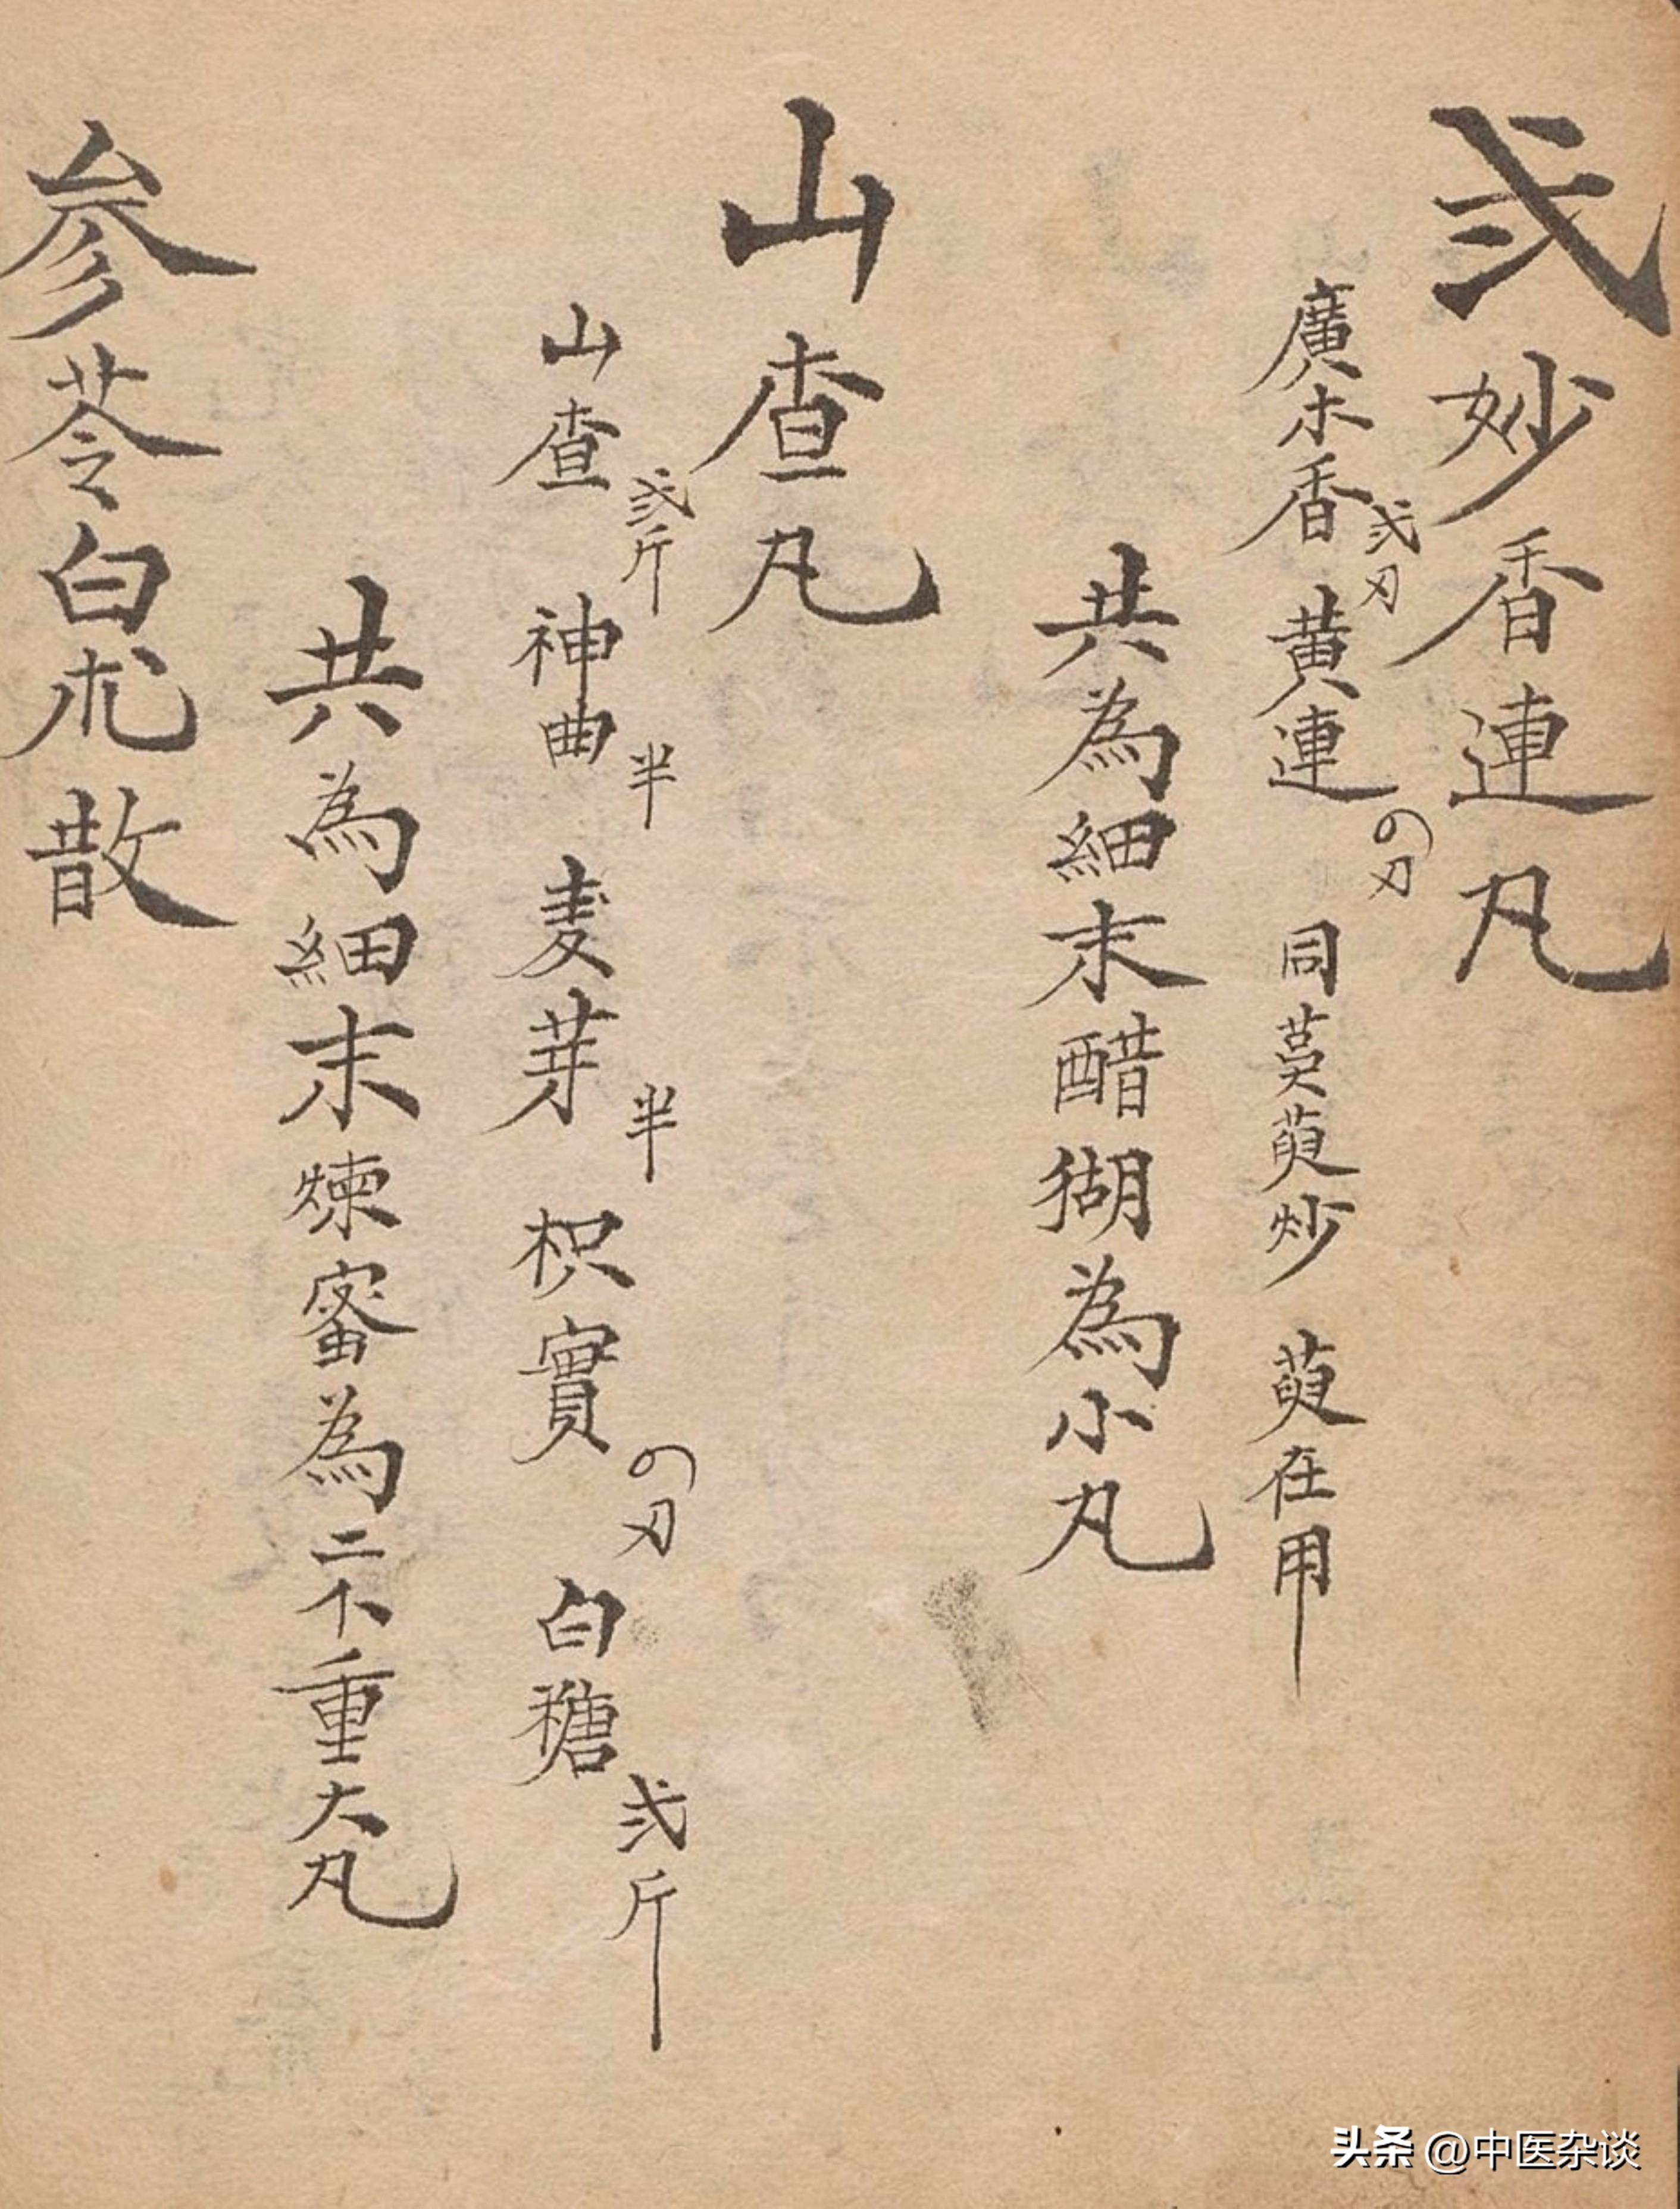 弍妙香連丸
廣木香弍刃 黄連の刃 同茣萸炒 萸在用
共為細末醋猢為小丸
山查丸
山查弍斤 神曲半 麦芽半 枳實の刃 白糖弍斤
共為細末煉蜜為二个重大丸
参苓白朮散
头条 @中医杂谈